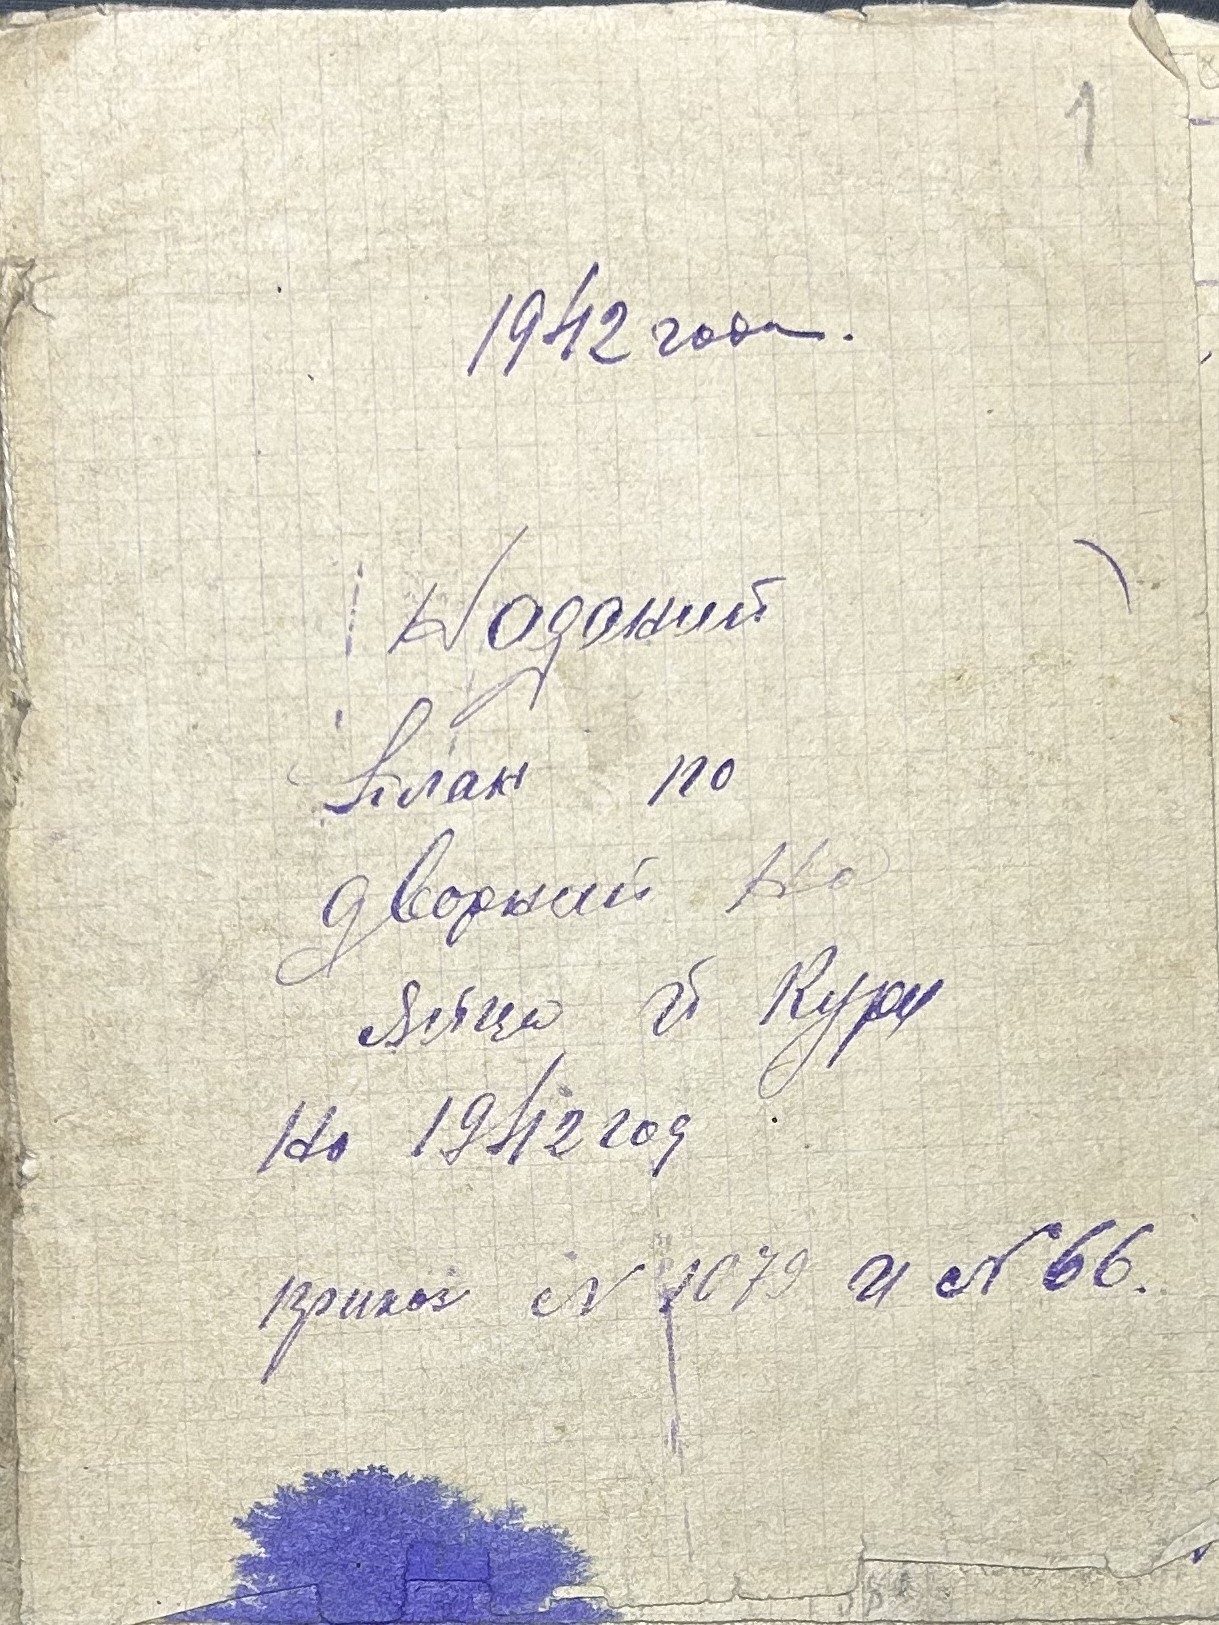 1
1942 года.
Нодоний
План по
дворний на
яйцо й Куры
На 1942 год
приказ № 1079 и № 66.